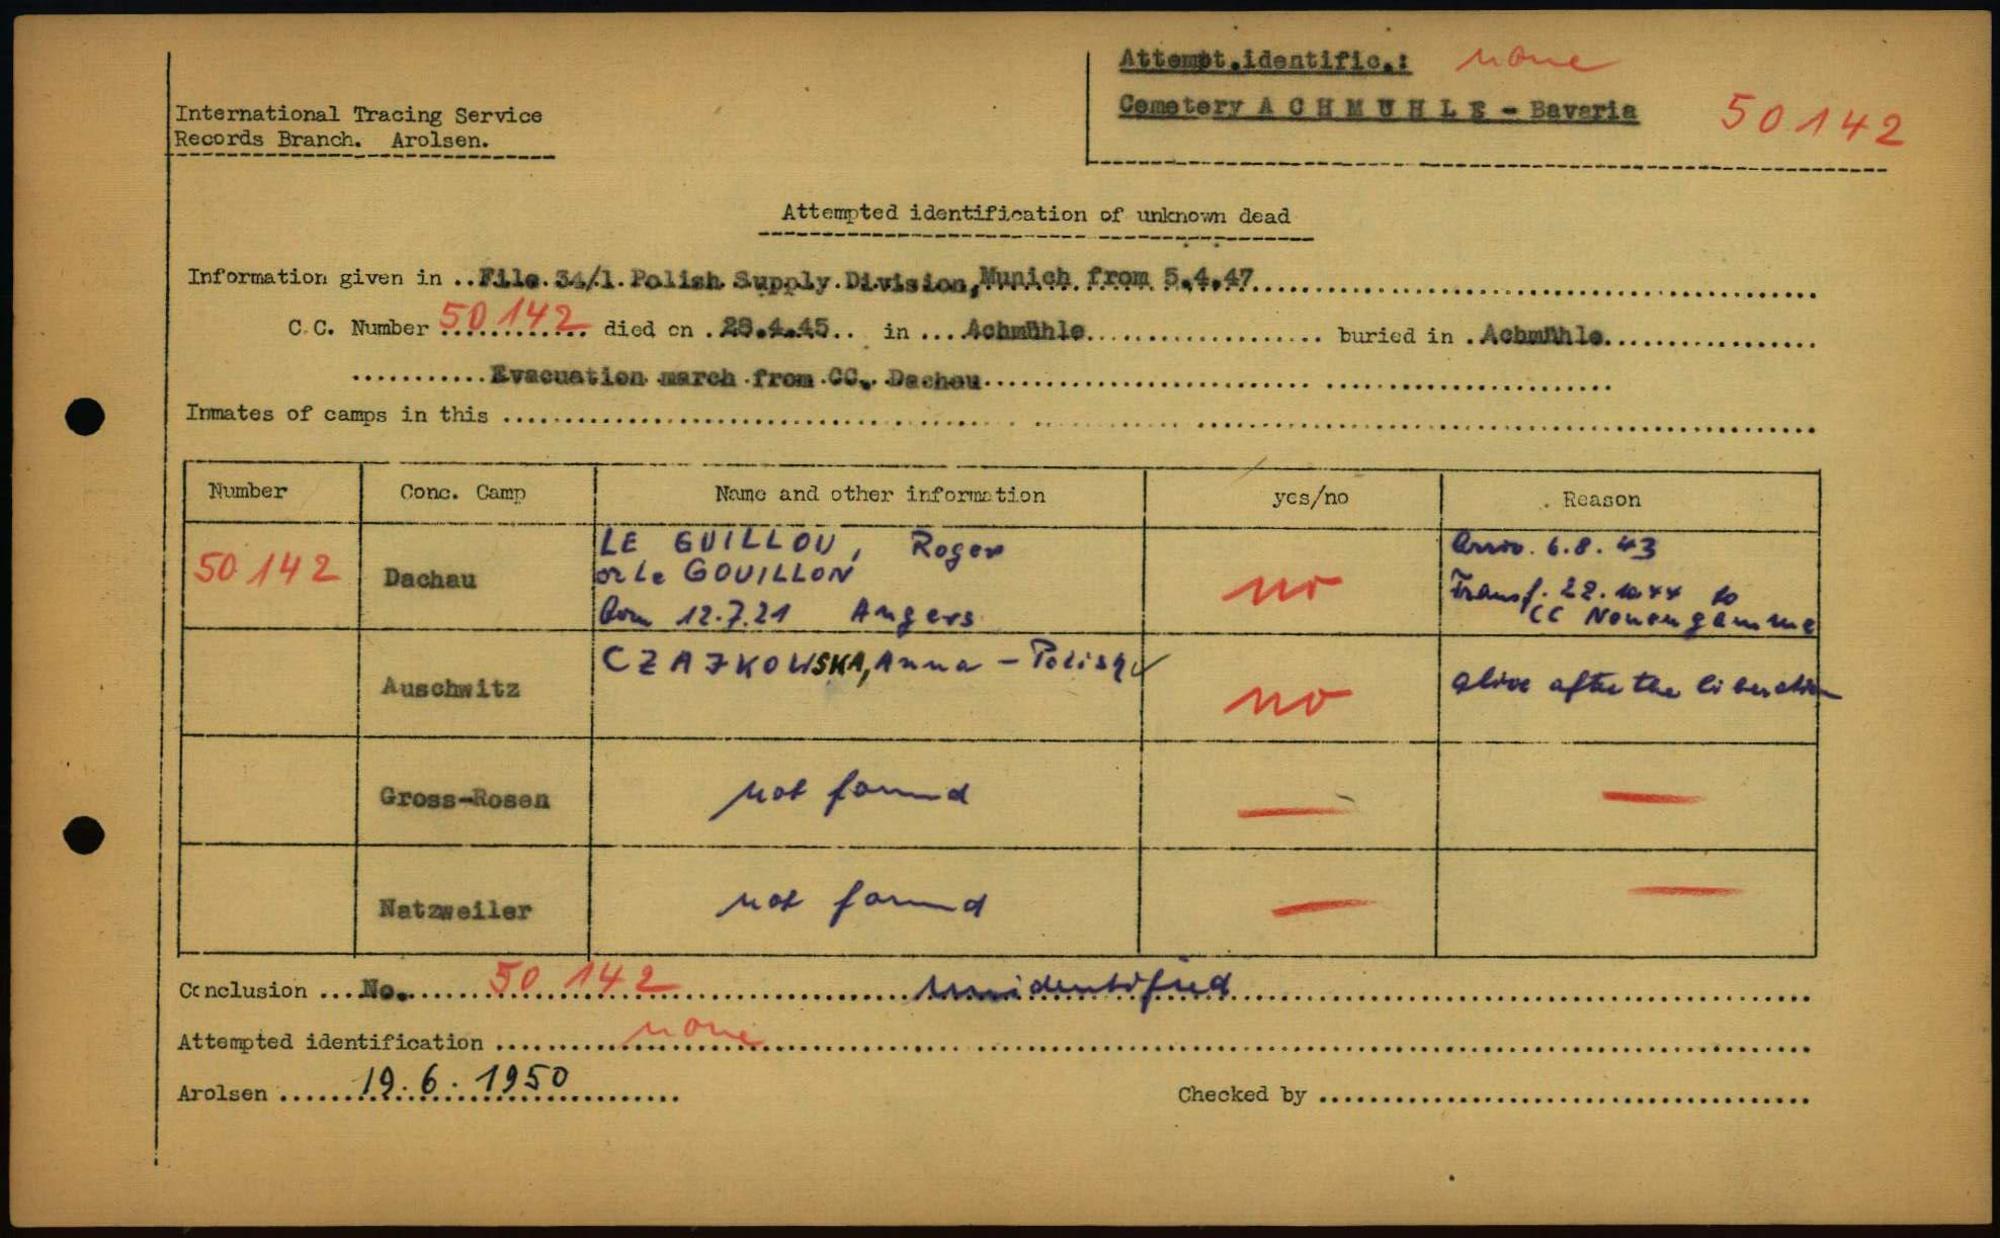 Attempt.identific.: none
Cemetery A C H M U H L E - Bavaria 50142
International Tracing Service
Records Branch. Arolsen.
Attempted identification of unknown dead
Information given in ..File 34/1 Polish Supply Division, Munich from 5.4.47
C.C. Number 50142 died on .28.4.45.. in ...Achmühle buried in .Achmühle
Evacuation march from CC. Dachau
Inmates of camps in this
Number Conc. Camp Name and other information yes/no Reason
50142 Dachau LE GUILLOU, Roger no Arriv. 6.8.43
or Le GOUILLON Transf. 22.10.44 to
Born 12.7.21 Angers CC Neuengamme
Auschwitz CZAJKOWSKA, Anna - Polish no alive after the liberation
Gross-Rosen not found — —
Natzweiler not found — —
Conclusion ...No. 50142 unidentified
Attempted identification none
Arolsen 19.6.1950 Checked by